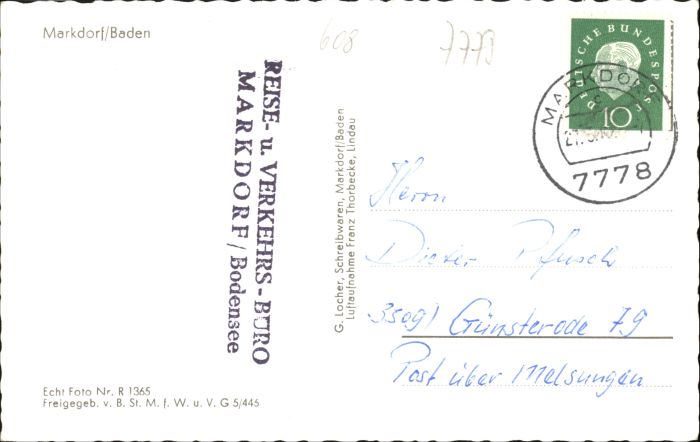 Markdorf/Baden
608
7779
DEUTSCHE BUNDESPOST
10
MARKDORF
7778
REISE- u. VERKEHRS-BÜRO
MARKDORF/Bodensee
G. Locher, Schreibwaren, Markdorf/Baden
Luftaufnahme Franz Thorbecke, Lindau
Herrn
Dieter Pfusch
3509) Günsterode 79
Post über Melsungen
Echt Foto Nr. R 1365
Freigegeb. v. B. St. M. f. W. u. V. G 5/445